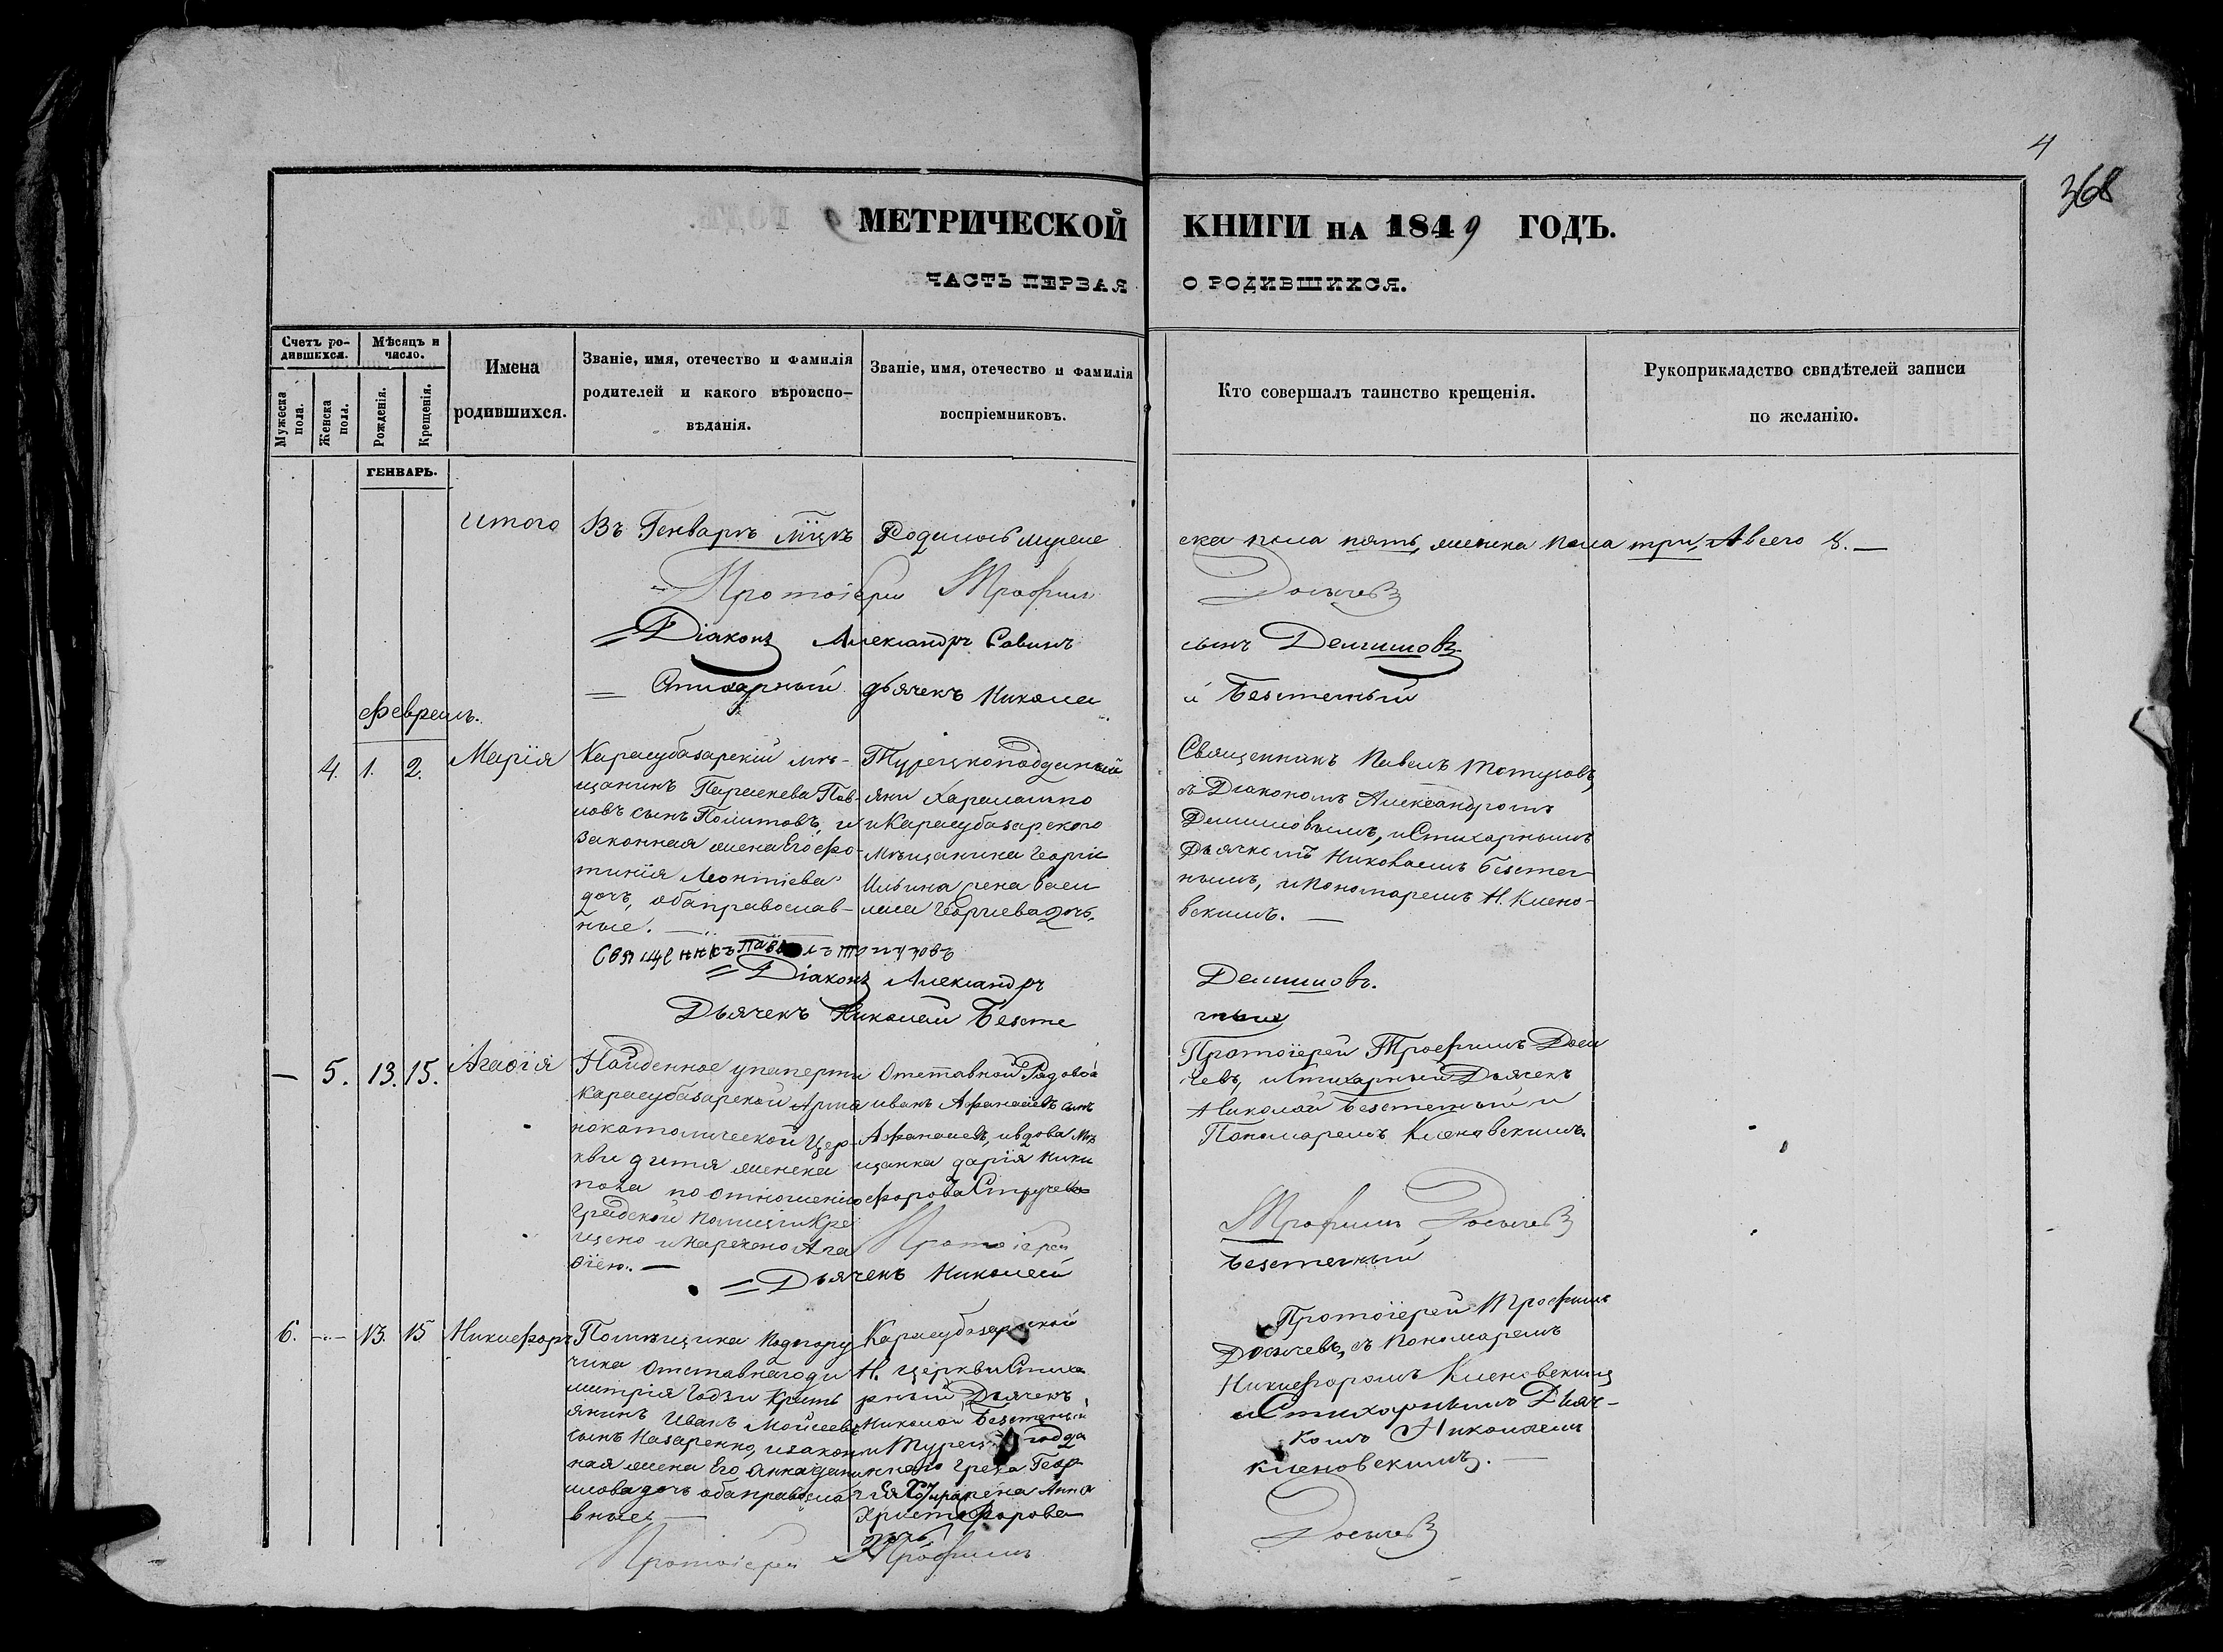 4
368
МЕТРИЧЕСКОЙ КНИГИ НА 1849 ГОДЪ.
ЧАСТЬ ПЕРВАЯ О РОДИВШИХСЯ.
Счетъ ро-
дившихся.
Мужеска пола.
Женска пола.
Мѣсяцъ и
число.
Рожденія.
Крещенія.
Имена
родившихся.
Званіе, имя, отечество и фамилія
родителей и какого вѣроиспо-
вѣданія.
Званіе, имя, отечество и фамилія
воспріемниковъ.
Кто совершалъ таинство крещенія.
Рукоприкладство свидѣтелей записи
по желанію.
ГЕНВАРЬ.
Итого Въ Генварѣ Родилось мужеска пола пять, женска пола три, А всего 8. —
Протоіерей Трофим Досычевъ
Діаконъ Александръ Савинъ сынъ Демишовъ
Стихарный дьячекъ Николай Безстечный
Февраль.
4. 1. 2. Марія
Карасубазарскій мѣ-
щанинъ Параскева Пав-
ловъ сынъ Политовъ, и
законная жена Его Фо-
тинія Леонтіева
дочь, оба православ-
ные. —
Турецкоподданый
яни Хараламно
и Карасубазарского
Мѣщанина Георгія
Ильина жена
Георгіева дочь.
Священникъ Павелъ Тотузовъ,
съ Діакономъ Александромъ
Демишовымъ, и Стихарнымъ
Дьячкомъ Николаемъ Безстеч-
нымъ, и Пономаремъ Н. Клено-
вскимъ. —
Священикъ Павелъ Тотузовъ
Діаконъ Александръ Демишовъ.
Дьячекъ Николай Безстечный
— 5. 13. 15. Агаѳія
Найденное у паперти
Карасубазарской Армя
нокатолической Цер-
кви дитя женска
пола по отношенію
Градской Полиціи Кре
щено и наречено Ага
ѳіею. —
Отставной Рядовой
Иванъ Афанасіевъ сынъ
Афанасіевъ, и вдова Мѣ
щанка Дарія Ники
форова Стручева
Протоіерей Трофимъ Досы
чевъ, и Стихарный Дьячекъ
Николай Безстечный и
Пономаремъ Кленовскимъ.
Протоіерей Трофимъ Досычевъ
Дьячекъ Николай Безстечный
6. — 13. 15 Никифоръ
Помѣщика Подпору
чика Отставнаго Ди
митрія Годзи Крестъ
янинъ Иванъ Мойсеевъ
сынъ Назаренко, и закон
ная жена Его Анна
дочь оба православ
вные. —
Карасубазарской
Н. Церкви Стиха
рный Дьячекъ
Николай Безстечный
и Турецко подда
ннаго Грека Геор
гія жена Анна
Христофорова
дочь.
Протоіерей Трофимъ
Досычевъ, съ Пономаремъ
Никифоромъ Кленовскимъ
и Стихарнымъ Дьяч-
комъ Николаем
Кленовскимъ. —
Протоіерей Трофимъ Досычевъ